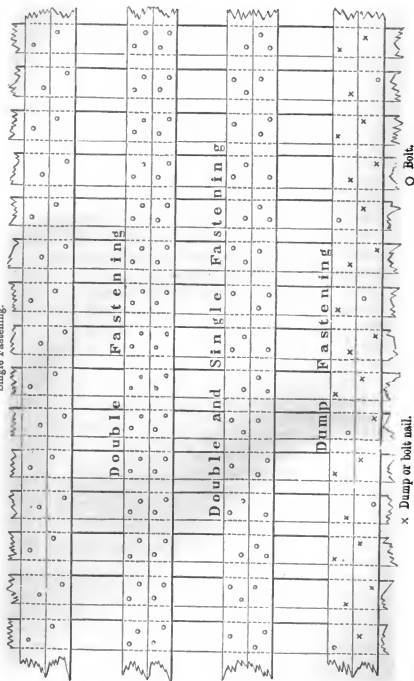 Single Fastening.
Double Fastening
Double and Single Fastening
Dump Fastening
× Dump or bolt nail.
O Bolt.